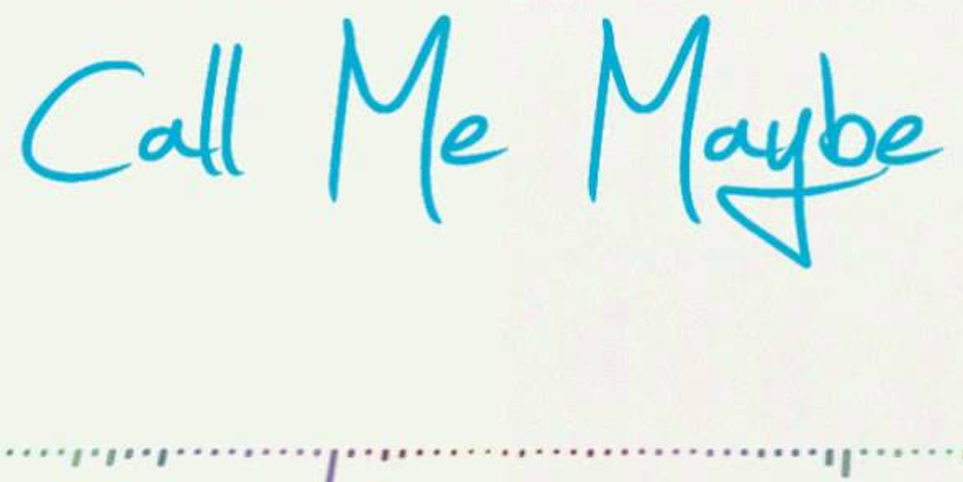 Call Me Maybe